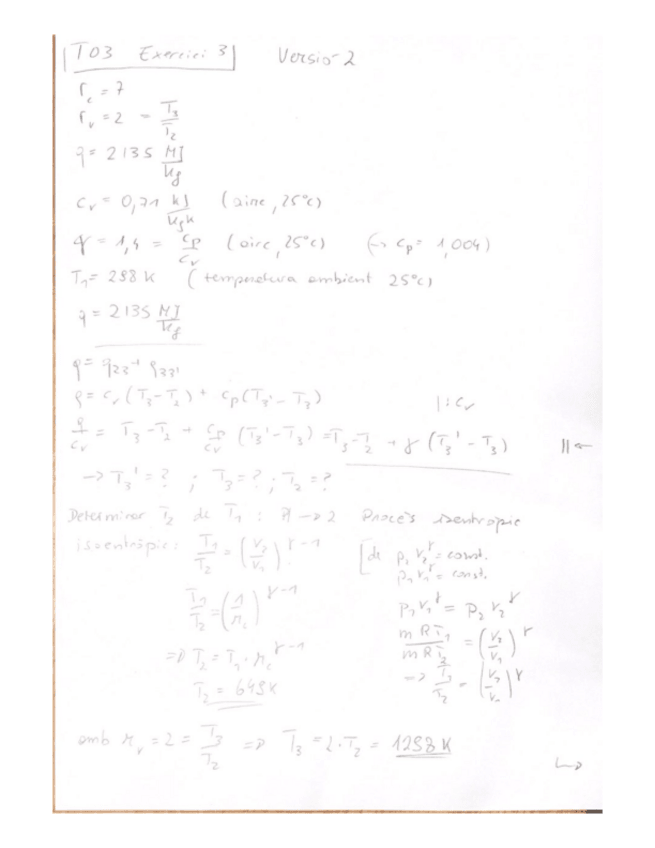 T03 Exercici 3 Versió 2
r_c = 7
r_v = 2 = T_3/T_2
q = 2135 MJ/kg
c_v = 0,71 kJ/kgK (aire, 25°C)
γ = 1,4 = c_p/c_v (aire, 25°C) (→ c_p = 1,004)
T_1 = 298 K (temperatura ambient 25°C)
q = 2135 MJ/kg
q = q_23 + q_33'
q = c_v (T_3 - T_2) + c_p (T_3' - T_3) | : c_v
q/c_v = T_3 - T_2 + c_p/c_v (T_3' - T_3) = T_3 - T_2 + γ (T_3' - T_3) ||←
→ T_3' = ? ; T_3 = ? ; T_2 = ?
Determinar T_2 de T_1 : 1 → 2 Procés isentròpic
isoentròpic: T_1/T_2 = (V_2/V_1)^γ-1 [de p_2 V_2^γ = const.
p_1 V_1^γ = const.
T_1/T_2 = (1/r_c)^γ-1 p_1 V_1^γ = p_2 V_2^γ
m R T_1/m R T_2 = (V_2/V_1)^γ
=> T_2 = T_1 · r_c^γ-1 → T_1/T_2 = (V_2/V_1)^γ
T_2 = 649 K
amb r_v = 2 = T_3/T_2 => T_3 = 2 · T_2 = 1298 K
↪